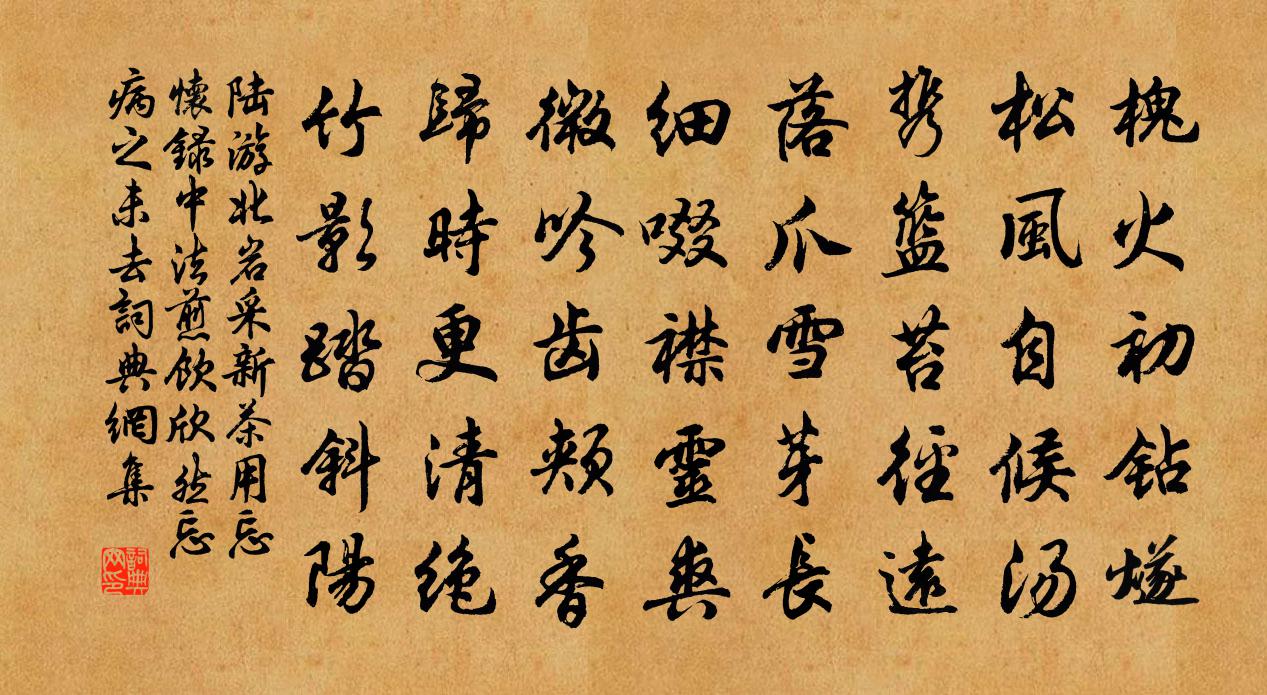 槐火初钻燧
松風自候汤
携籃苔径遠
落爪雪芽長
細啜襟靈爽
微吟齿頰香
歸時更清絶
竹影踏斜陽
陆游北岩采新茶用忘
懷録中法煎飲欣然忘
病之未去詞典網集
詞典
网印